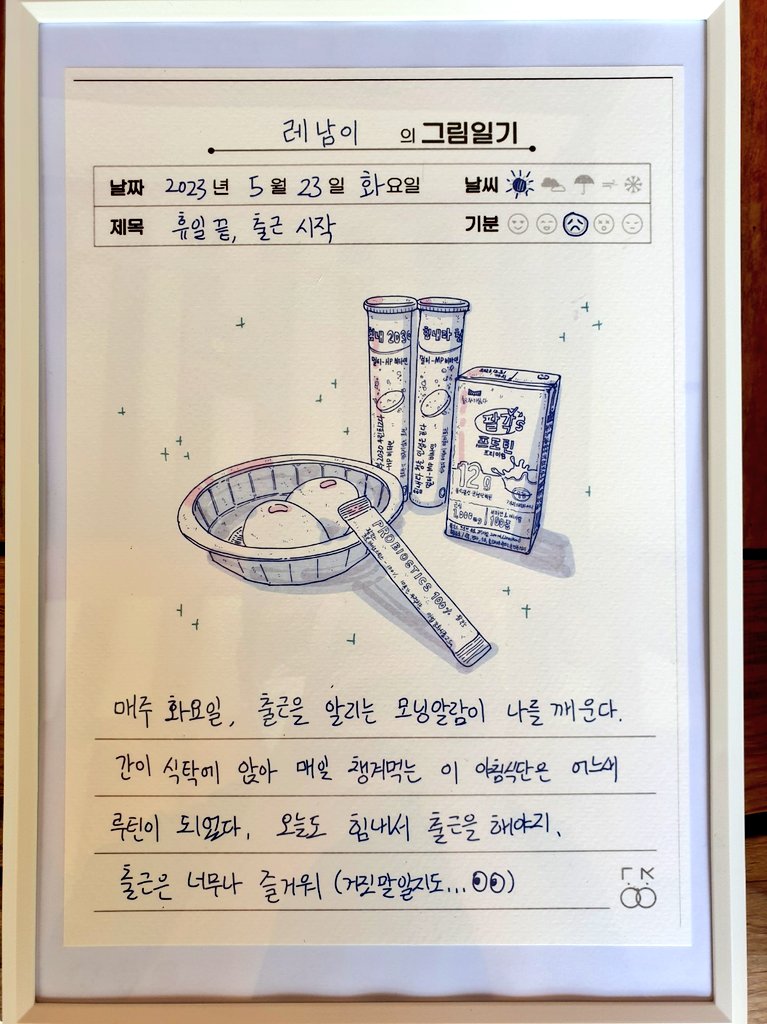 레남이 의 그림일기
날짜 2023 년 5 월 23 일 화요일 날씨
제목 휴일 끝, 출근 시작 기분
힘내 2030
멀티-HP 비타민
힘내라
멀티-MP 비타민
팔각's
프로틴
프리미엄
12g
PROBIOSTICS 100%
매주 화요일, 출근을 알리는 모닝알람이 나를 깨운다.
간이 식탁에 앉아 매일 챙겨먹는 이 아침식단은 어느새
루틴이 되었다. 오늘도 힘내서 출근을 해야지.
출근은 너무나 즐거워 (거짓말일지도...👀)